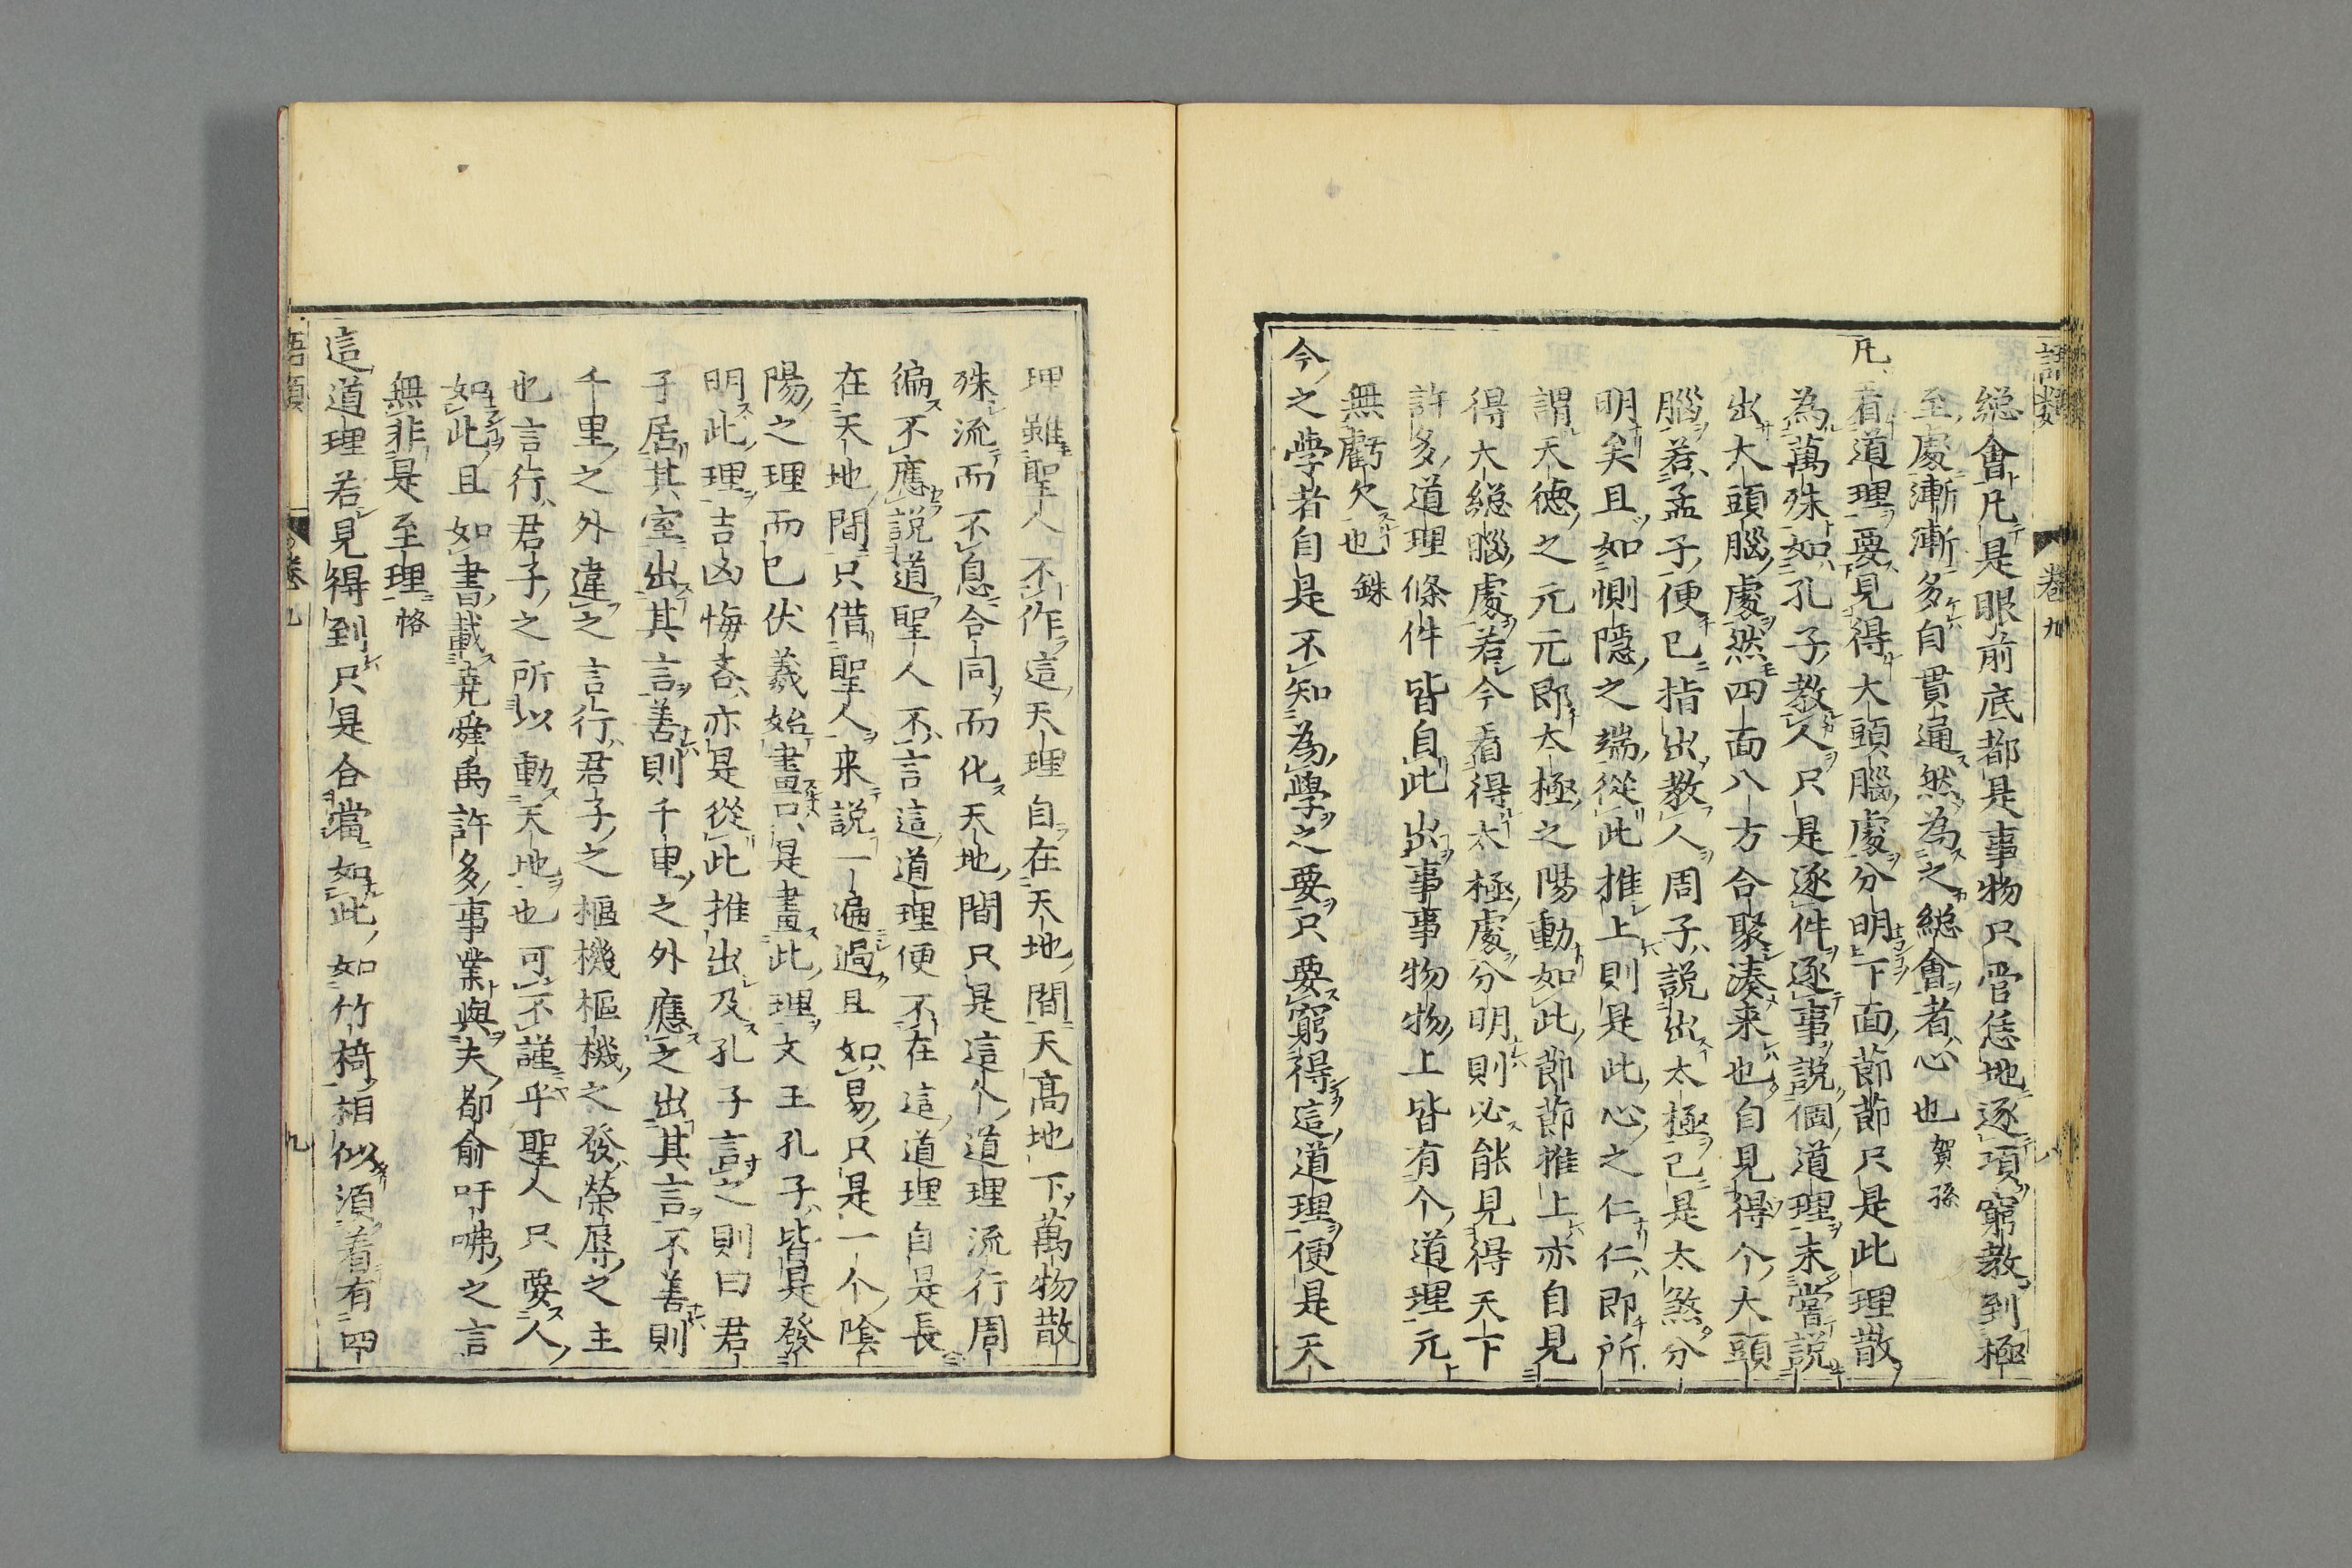 語類 卷九 八
總會凡是眼前底都是事物只管恁地逐項窮教到極
至處漸漸多自貫通然為之總會者心也 賀孫
凡看道理要見得大頭腦處分明下面節節只是此理散
為萬殊如孔子教人只是逐件逐事說個道理未嘗說
出大頭腦處然四面八方合聚湊來也自見得个大頭
腦若孟子便已指出教人周子說出太極已是太煞分
明矣且如惻隱之端從此推上則是此心之仁仁即所
謂天德之元元即太極之陽動如此節節推上亦自見
得大總腦處若今看得太極處分明則必能見得天下
許多道理條件皆自此出事事物物上皆有个道理元
無虧欠也 銖
今之學者自是不知為學之要只要窮得這道理便是天
理雖聖人不作這天理自在天地間天高地下萬物散
殊流而不息合同而化天地間只是這个道理流行周
徧不應說道聖人不言這道理便不在這道理自是長
在天地間只借聖人来說一遍過且如易只是一个陰
陽之理而已伏羲始畫只是畫此理文王孔子皆是發
明此理吉凶悔吝亦是從此推出及孔子言之則曰君
子居其室出其言善則千里之外應之出其言不善則
千里之外違之言行君子之樞機樞機之發榮辱之主
也言行君子之所以動天地也可不謹乎聖人只要人
如此且如書載堯舜禹許多事業與夫都俞吁咈之言
無非是至理 恪
這道理若見得到只是合當如此如竹椅相似須着有四
語類 卷九 九